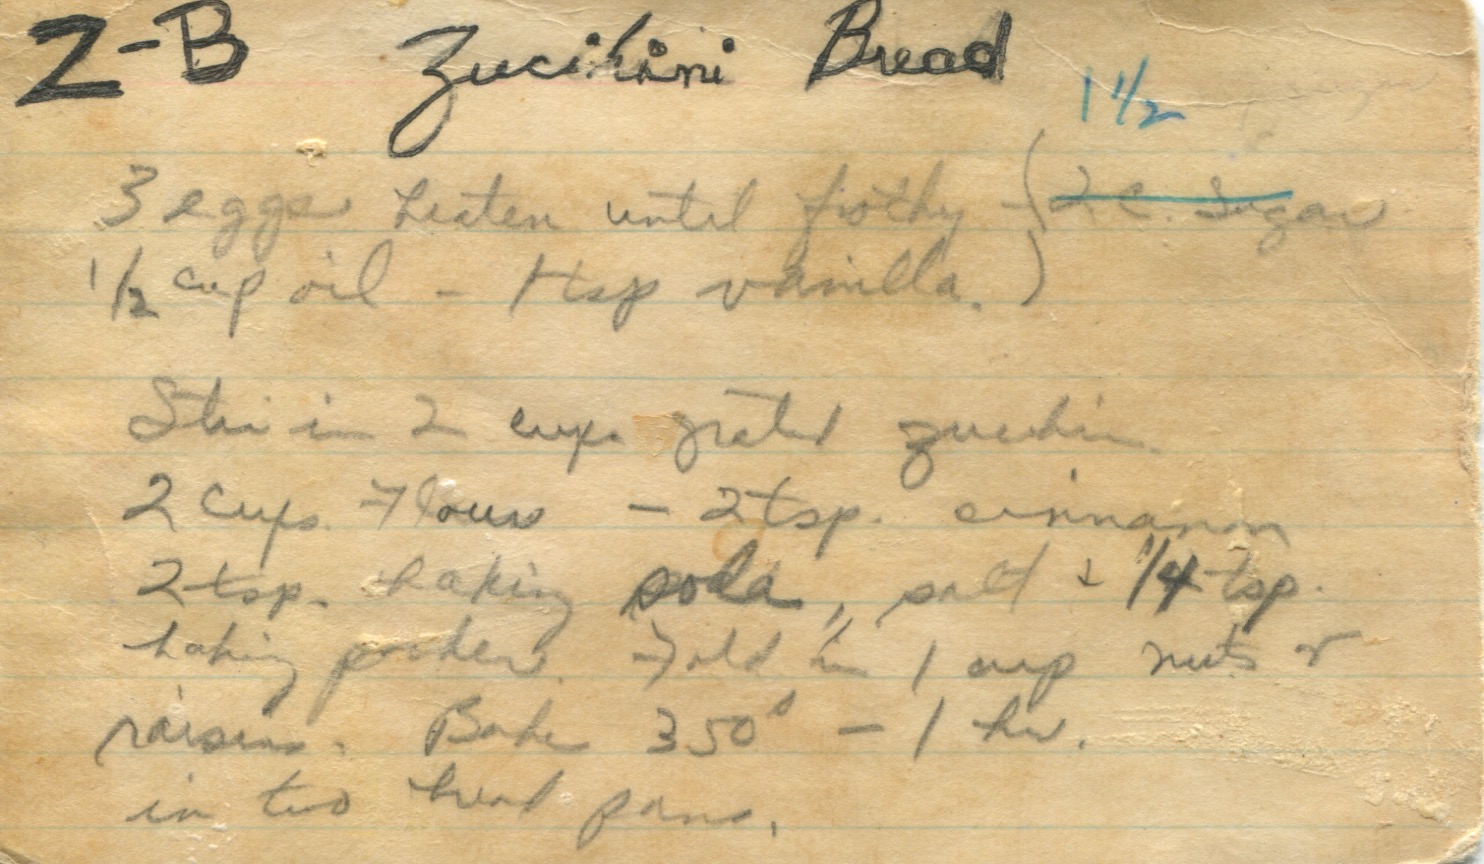 Z-B Zucihini Bread
1 1/2
3 eggs beaten until frothy - (2 c. sugar
1/2 cup oil - 1 tsp vanilla.)
Stir in 2 cups grated zucchini
2 cups flour - 2 tsp. cinnamon
2 tsp. baking soda, " salt + 1/4 tsp.
baking powder. Fold in 1 cup nuts or
raisins. Bake 350° - 1 hr.
in two bread pans.